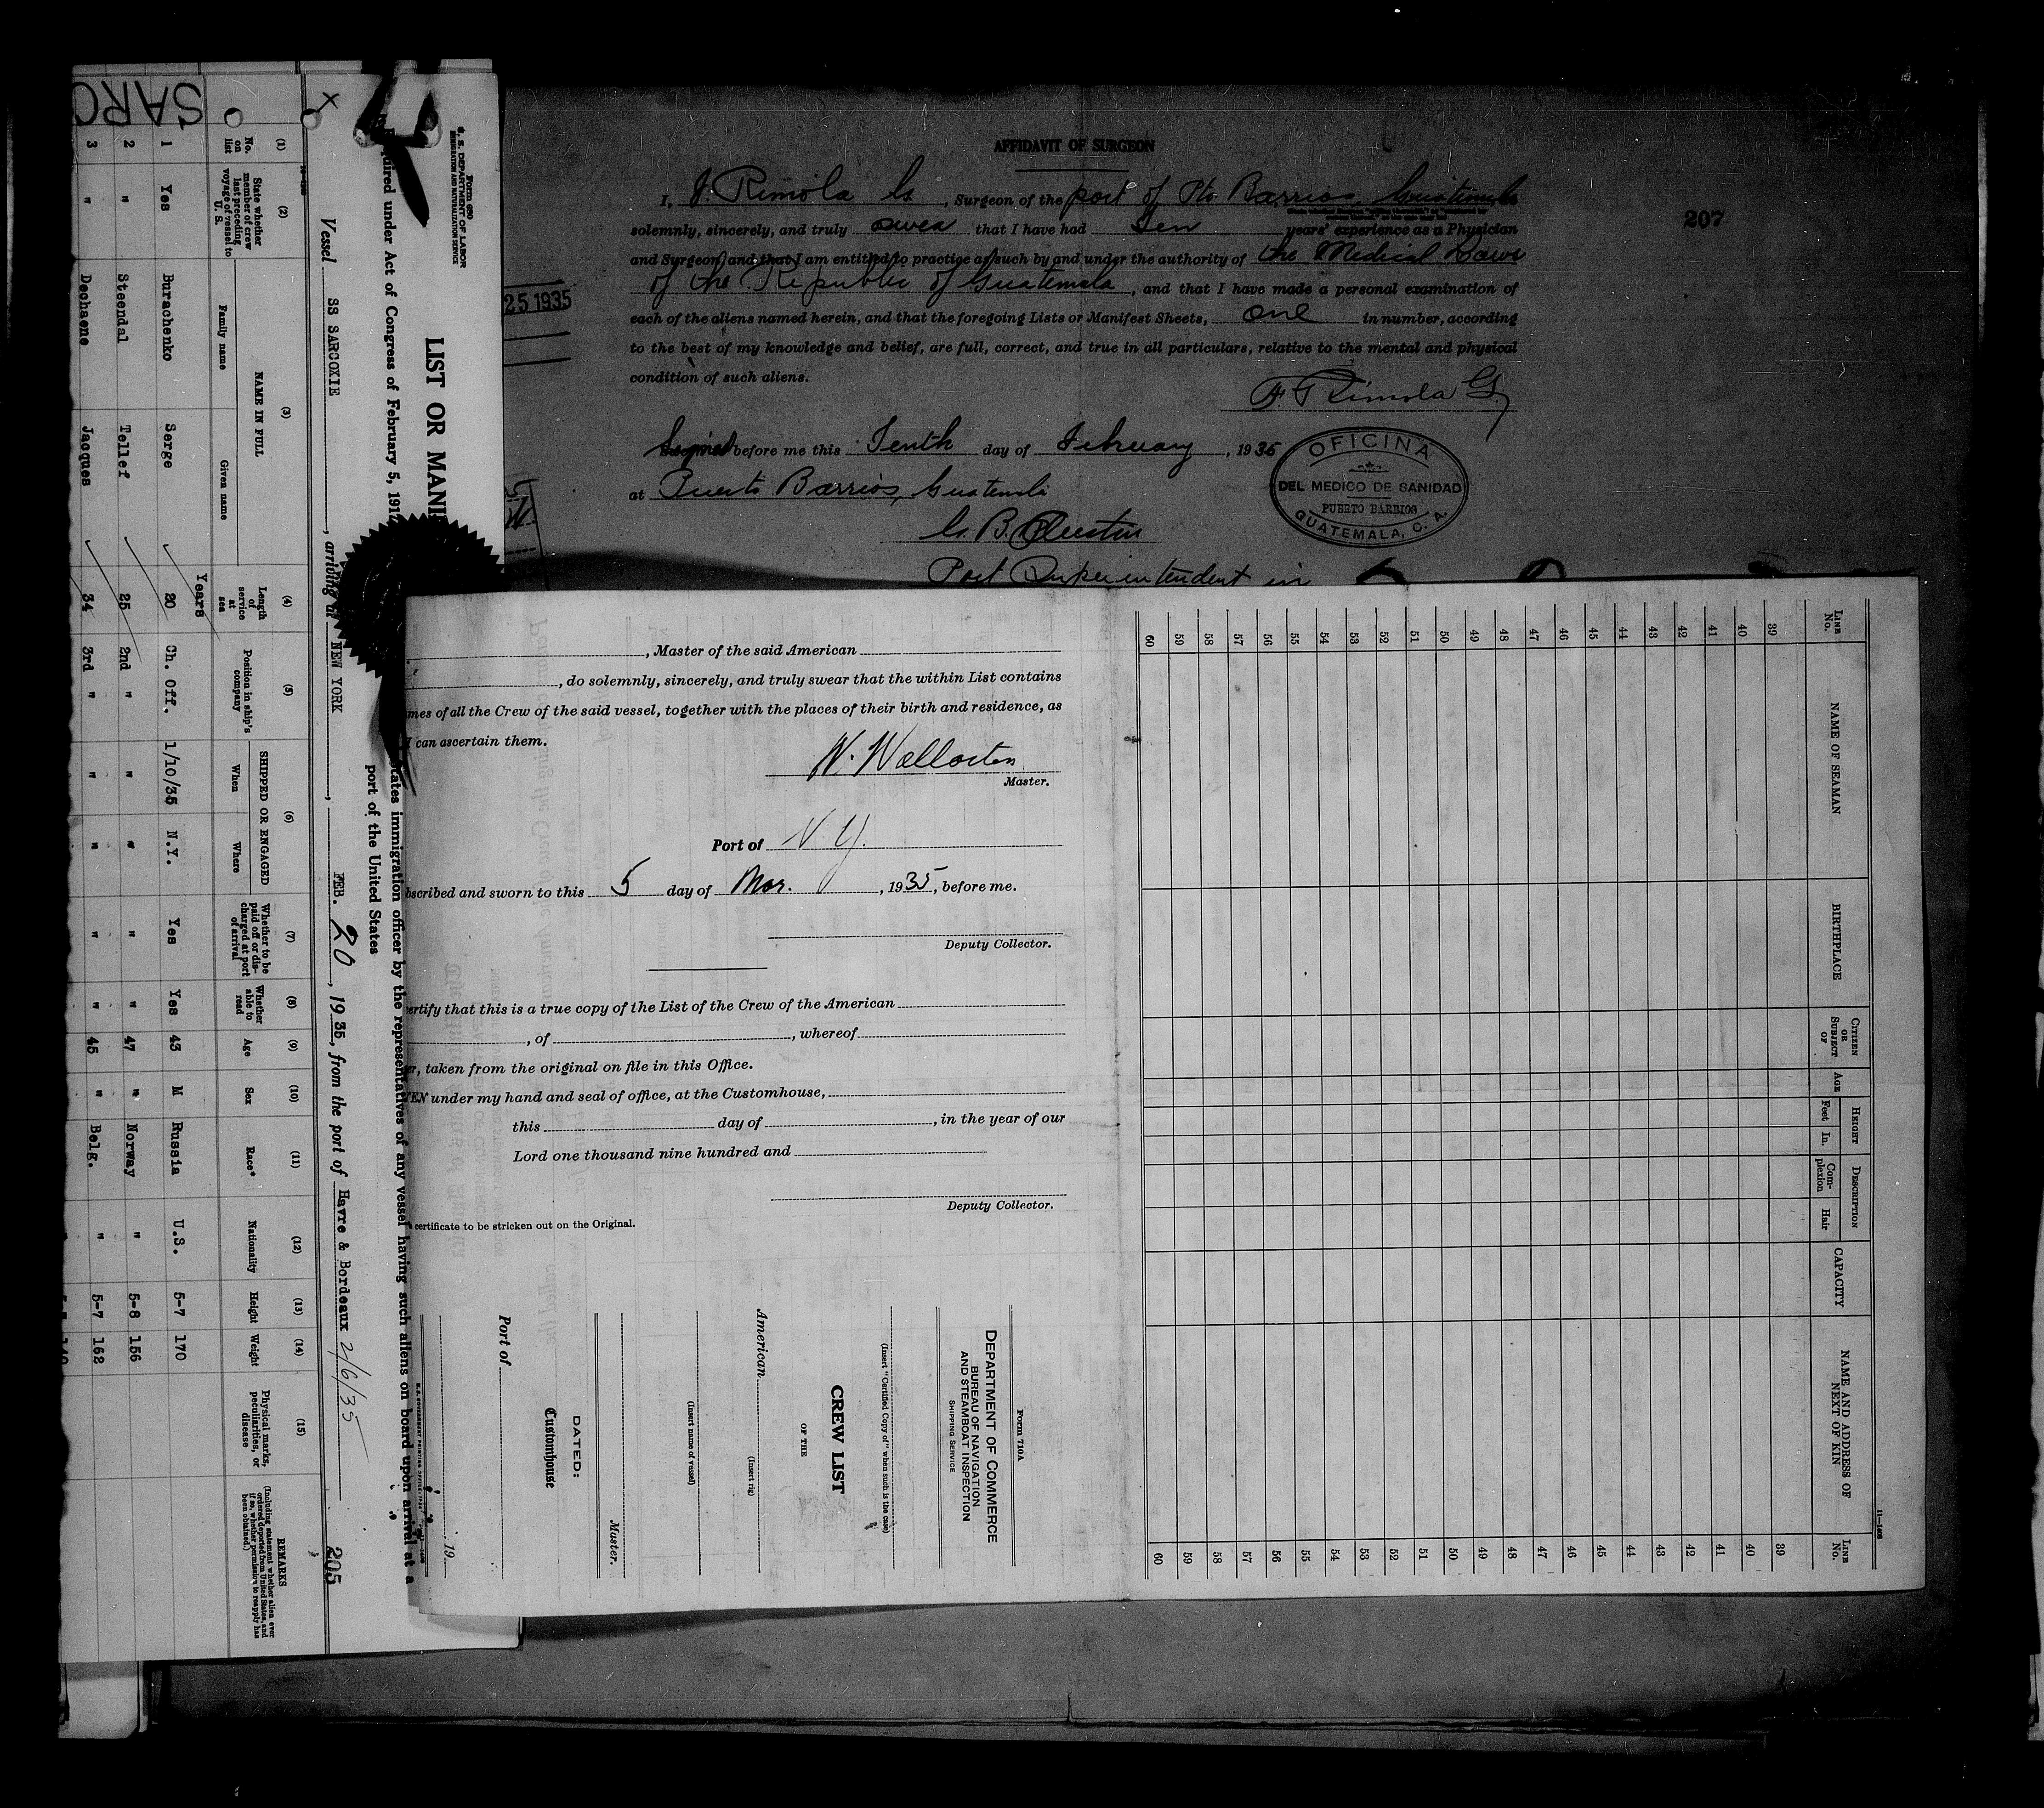 AFFIDAVIT OF SURGEON
I, F. Rimola G., Surgeon of the port of Pto Barrios, Guatemala
solemnly, sincerely, and truly swear that I have had Ten years' experience as a Physician
and Surgeon and that I am entitled to practice as such by and under the authority of the Medical Laws
of the Republic of Guatemala, and that I have made a personal examination of
each of the aliens named herein, and that the foregoing Lists or Manifest Sheets, one in number, according
to the best of my knowledge and belief, are full, correct, and true in all particulars, relative to the mental and physical
condition of such aliens.
F. Rimola G.
before me this Tenth day of February, 1935
at Puerto Barrios, Guatemala
Port Superintendent in
OFICINA
DEL MEDICO DE SANIDAD
PUERTO BARRIOS
GUATEMALA, C. A.
207
25 1935
Form 680
U. S. DEPARTMENT OF LABOR
IMMIGRATION AND NATURALIZATION SERVICE
LIST OR MANI
quired under Act of Congress of February 5, 1917
tates immigration officer by the representatives of any vessel having such aliens on board upon arrival at a
port of the United States
X
Vessel SS SARCOXIE, arriving at NEW YORK, FEB. 20, 1935, from the port of Havre & Bordeaux 2/6/35
205
SARC
(1) (2) (3) (4) (5) (6) (7) (8) (9) (10) (11) (12) (13) (14) (15)
No. on list
State whether member of crew last preceding voyage of vessel to U. S.
NAME IN FULL
Family name
Given name
Length of service at sea
Position in ship's company
SHIPPED OR ENGAGED
When
Where
Whether to be paid off or discharged at port of arrival
Whether able to read
Age
Sex
Race*
Nationality
Height
Weight
Physical marks, peculiarities, or disease
REMARKS
(Including statement whether alien ever ordered deported from United States, and if so, whether permission to reapply has been obtained.)
Years
1 Yes Burachenko Serge 20 Ch. Off. 1/10/35 N.Y. Yes Yes 43 M Russia U.S. 5-7 170
2 " Steendal Tellef 25 2nd " " " " " 47 " Norway " 5-8 156
3 " Dechaene Jacques 34 3rd " " " " " 45 " Belg. " 5-7 162
, Master of the said American
, do solemnly, sincerely, and truly swear that the within List contains
mes of all the Crew of the said vessel, together with the places of their birth and residence, as
I can ascertain them.
Master.
Port of N Y.
bscribed and sworn to this 5 day of Mar., 1935, before me.
Deputy Collector.
ertify that this is a true copy of the List of the Crew of the American
, of , whereof
er, taken from the original on file in this Office.
EN under my hand and seal of office, at the Customhouse,
this day of , in the year of our
Lord one thousand nine hundred and
Deputy Collector.
certificate to be stricken out on the Original.
Form 710A
DEPARTMENT OF COMMERCE
BUREAU OF NAVIGATION
AND STEAMBOAT INSPECTION
SHIPPING SERVICE
(Insert "Certified Copy of" when such is the case)
CREW LIST
OF THE
American
(Insert rig)
(Insert name of vessel)
Master.
DATED:
Customhouse
Port of
, 19
LINE No.
NAME OF SEAMAN
BIRTHPLACE
CITIZEN OR SUBJECT OF
AGE
HEIGHT
Feet
In.
DESCRIPTION
Complexion
Hair
CAPACITY
NAME AND ADDRESS OF NEXT OF KIN
LINE No.
39 39
40 40
41 41
42 42
43 43
44 44
45 45
46 46
47 47
48 48
49 49
50 50
51 51
52 52
53 53
54 54
55 55
56 56
57 57
58 58
59 59
60 60